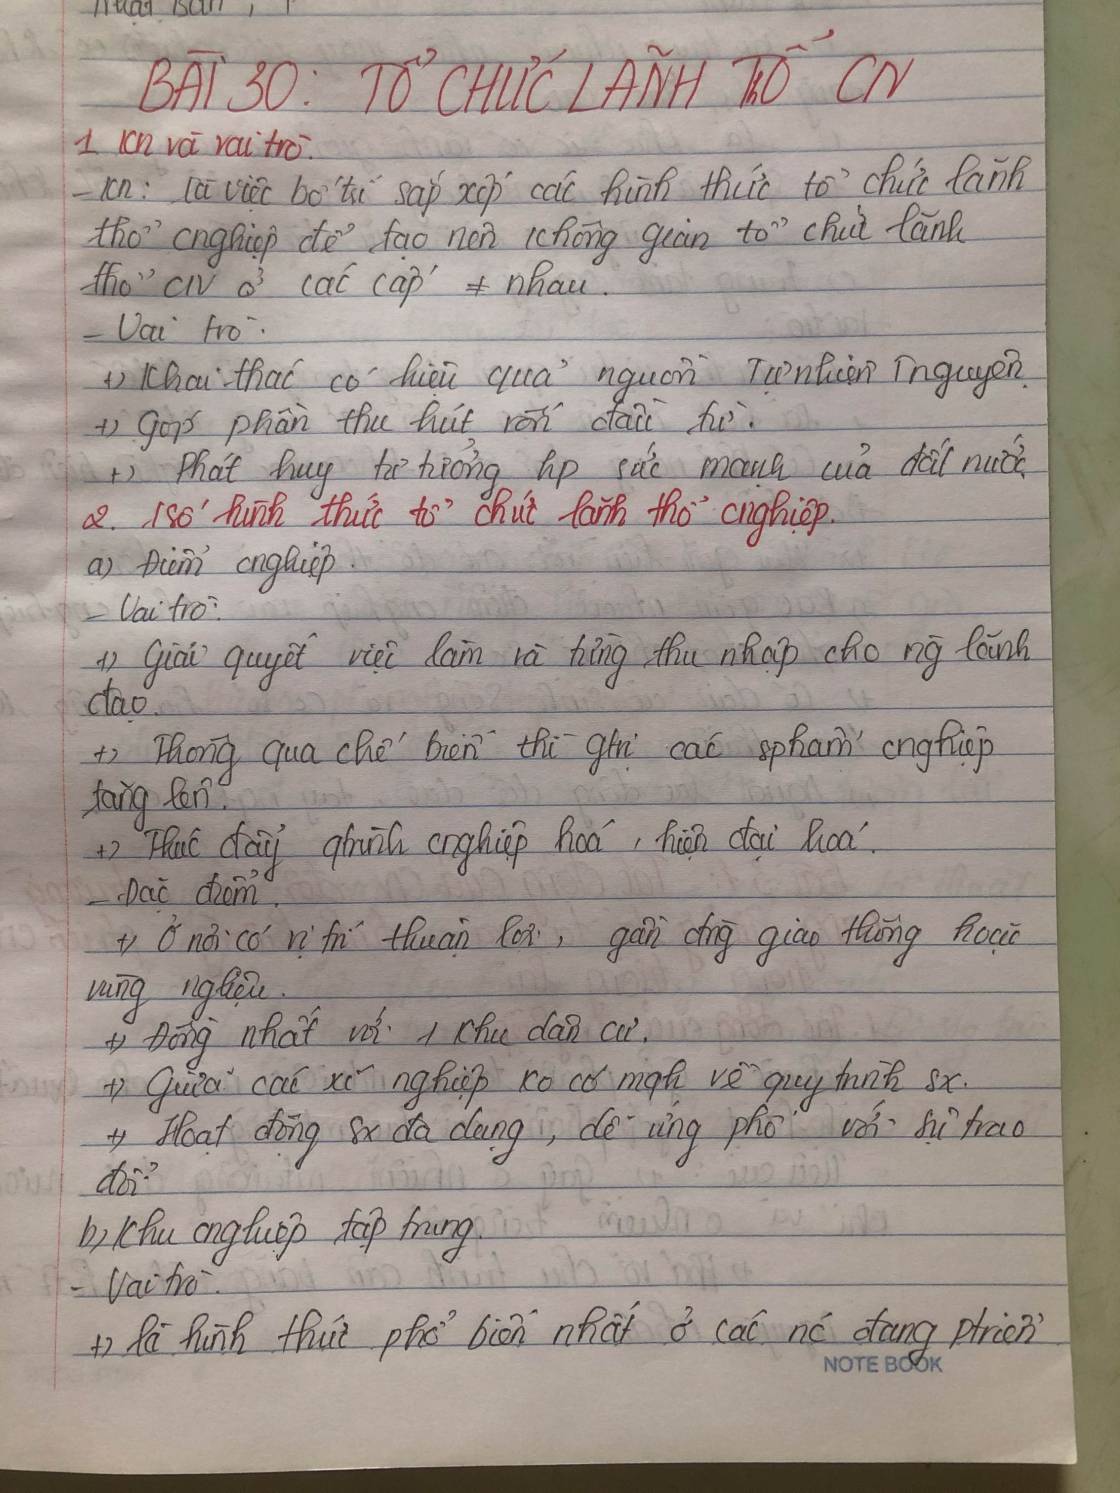 BÀI 30: TỔ CHỨC LÃNH THỔ CN
1 Kn và vai trò.
- Kn: là việc bố trí sắp xếp các hình thức tổ chức lãnh
thổ cnghiệp để tạo nên không gian tổ chức lãnh
thổ CN ở các cấp ≠ nhau.
- Vai trò:
+) Khai thác có hiệu quả nguồn Tự nhiên Tnguyên.
+) Góp phần thu hút vốn đầu tư.
+) Phát huy tư tưởng hp sức mạnh của đất nước
2. 1 số hình thức tổ chức lãnh thổ cnghiệp.
a) Điểm cnghiệp.
- Vai trò:
+) Giải quyết việc làm và tăng thu nhập cho ng lãnh
đạo.
+) Thông qua chế biến thì gtrị các sphẩm cnghiệp
tăng lên.
+) Thúc đẩy qtrình cnghiệp hoá, hiện đại hoá.
- Đặc điểm.
+) Ở nơi có vị trí thuận lợi, gần đng giao thông hoặc
vùng ngliệu.
+) Đồng nhất với 1 khu dân cư.
+) Giữa các xí nghiệp ko có mqh về quy trình sx.
+) Hoạt động sx đa dạng, dễ ứng phó với sự trao
đổi
b) Khu cnghiệp tập trung.
- Vai trò.
+) là hình thức phổ biến nhất ở các nc đang ptriển
NOTE BOOK